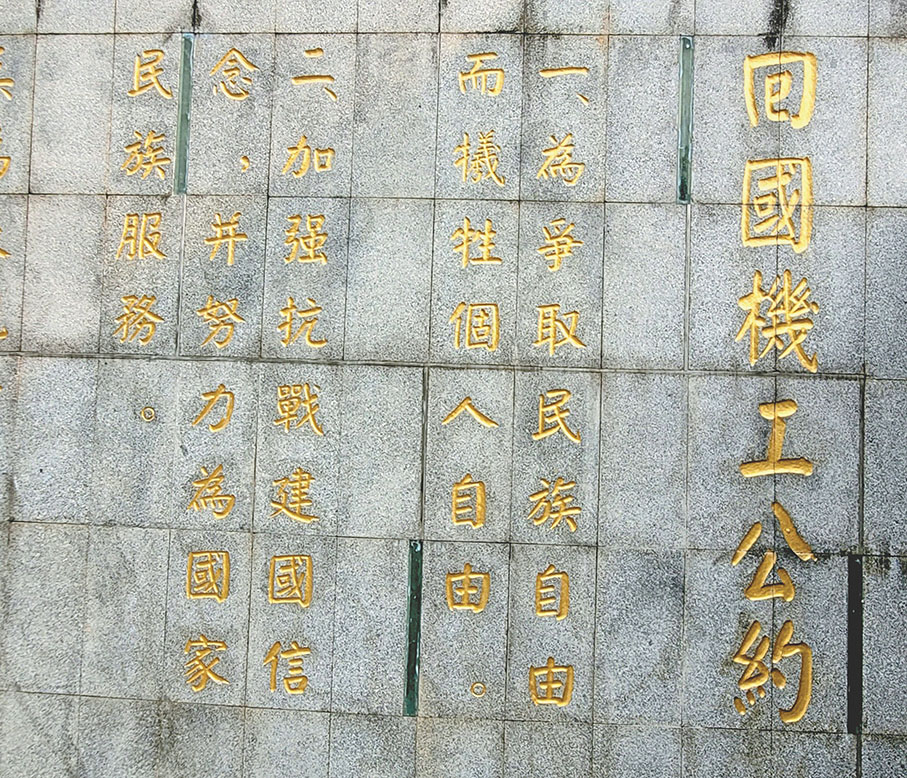 回國機工公約
一、為爭取民族自由
而犧牲個人自由。
二、加强抗戰建國信
念，并努力為國家
民族服務。